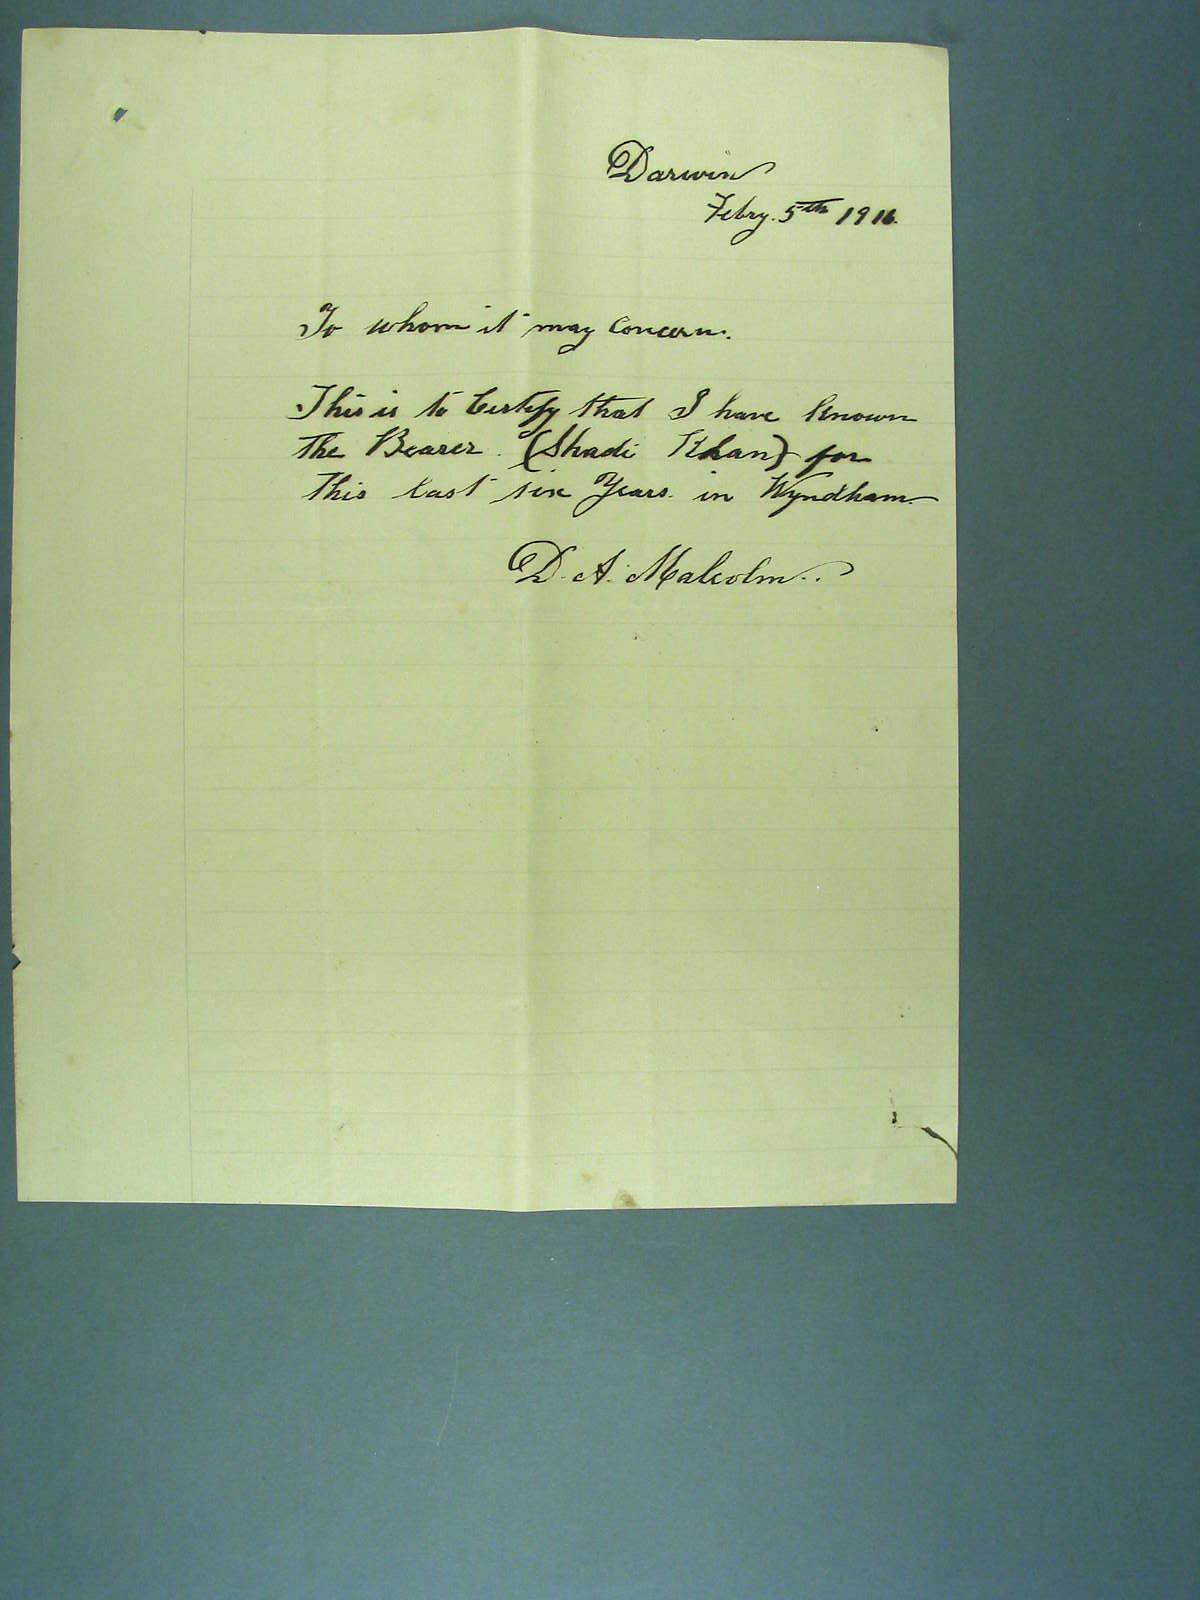 Darwin
Febry. 5th 1916.
To whom it may Concern.
This is to Certify that I have known
the Bearer. (Shadi Khan) for
this last six Years. in Wyndham.
D. A. Malcolm..